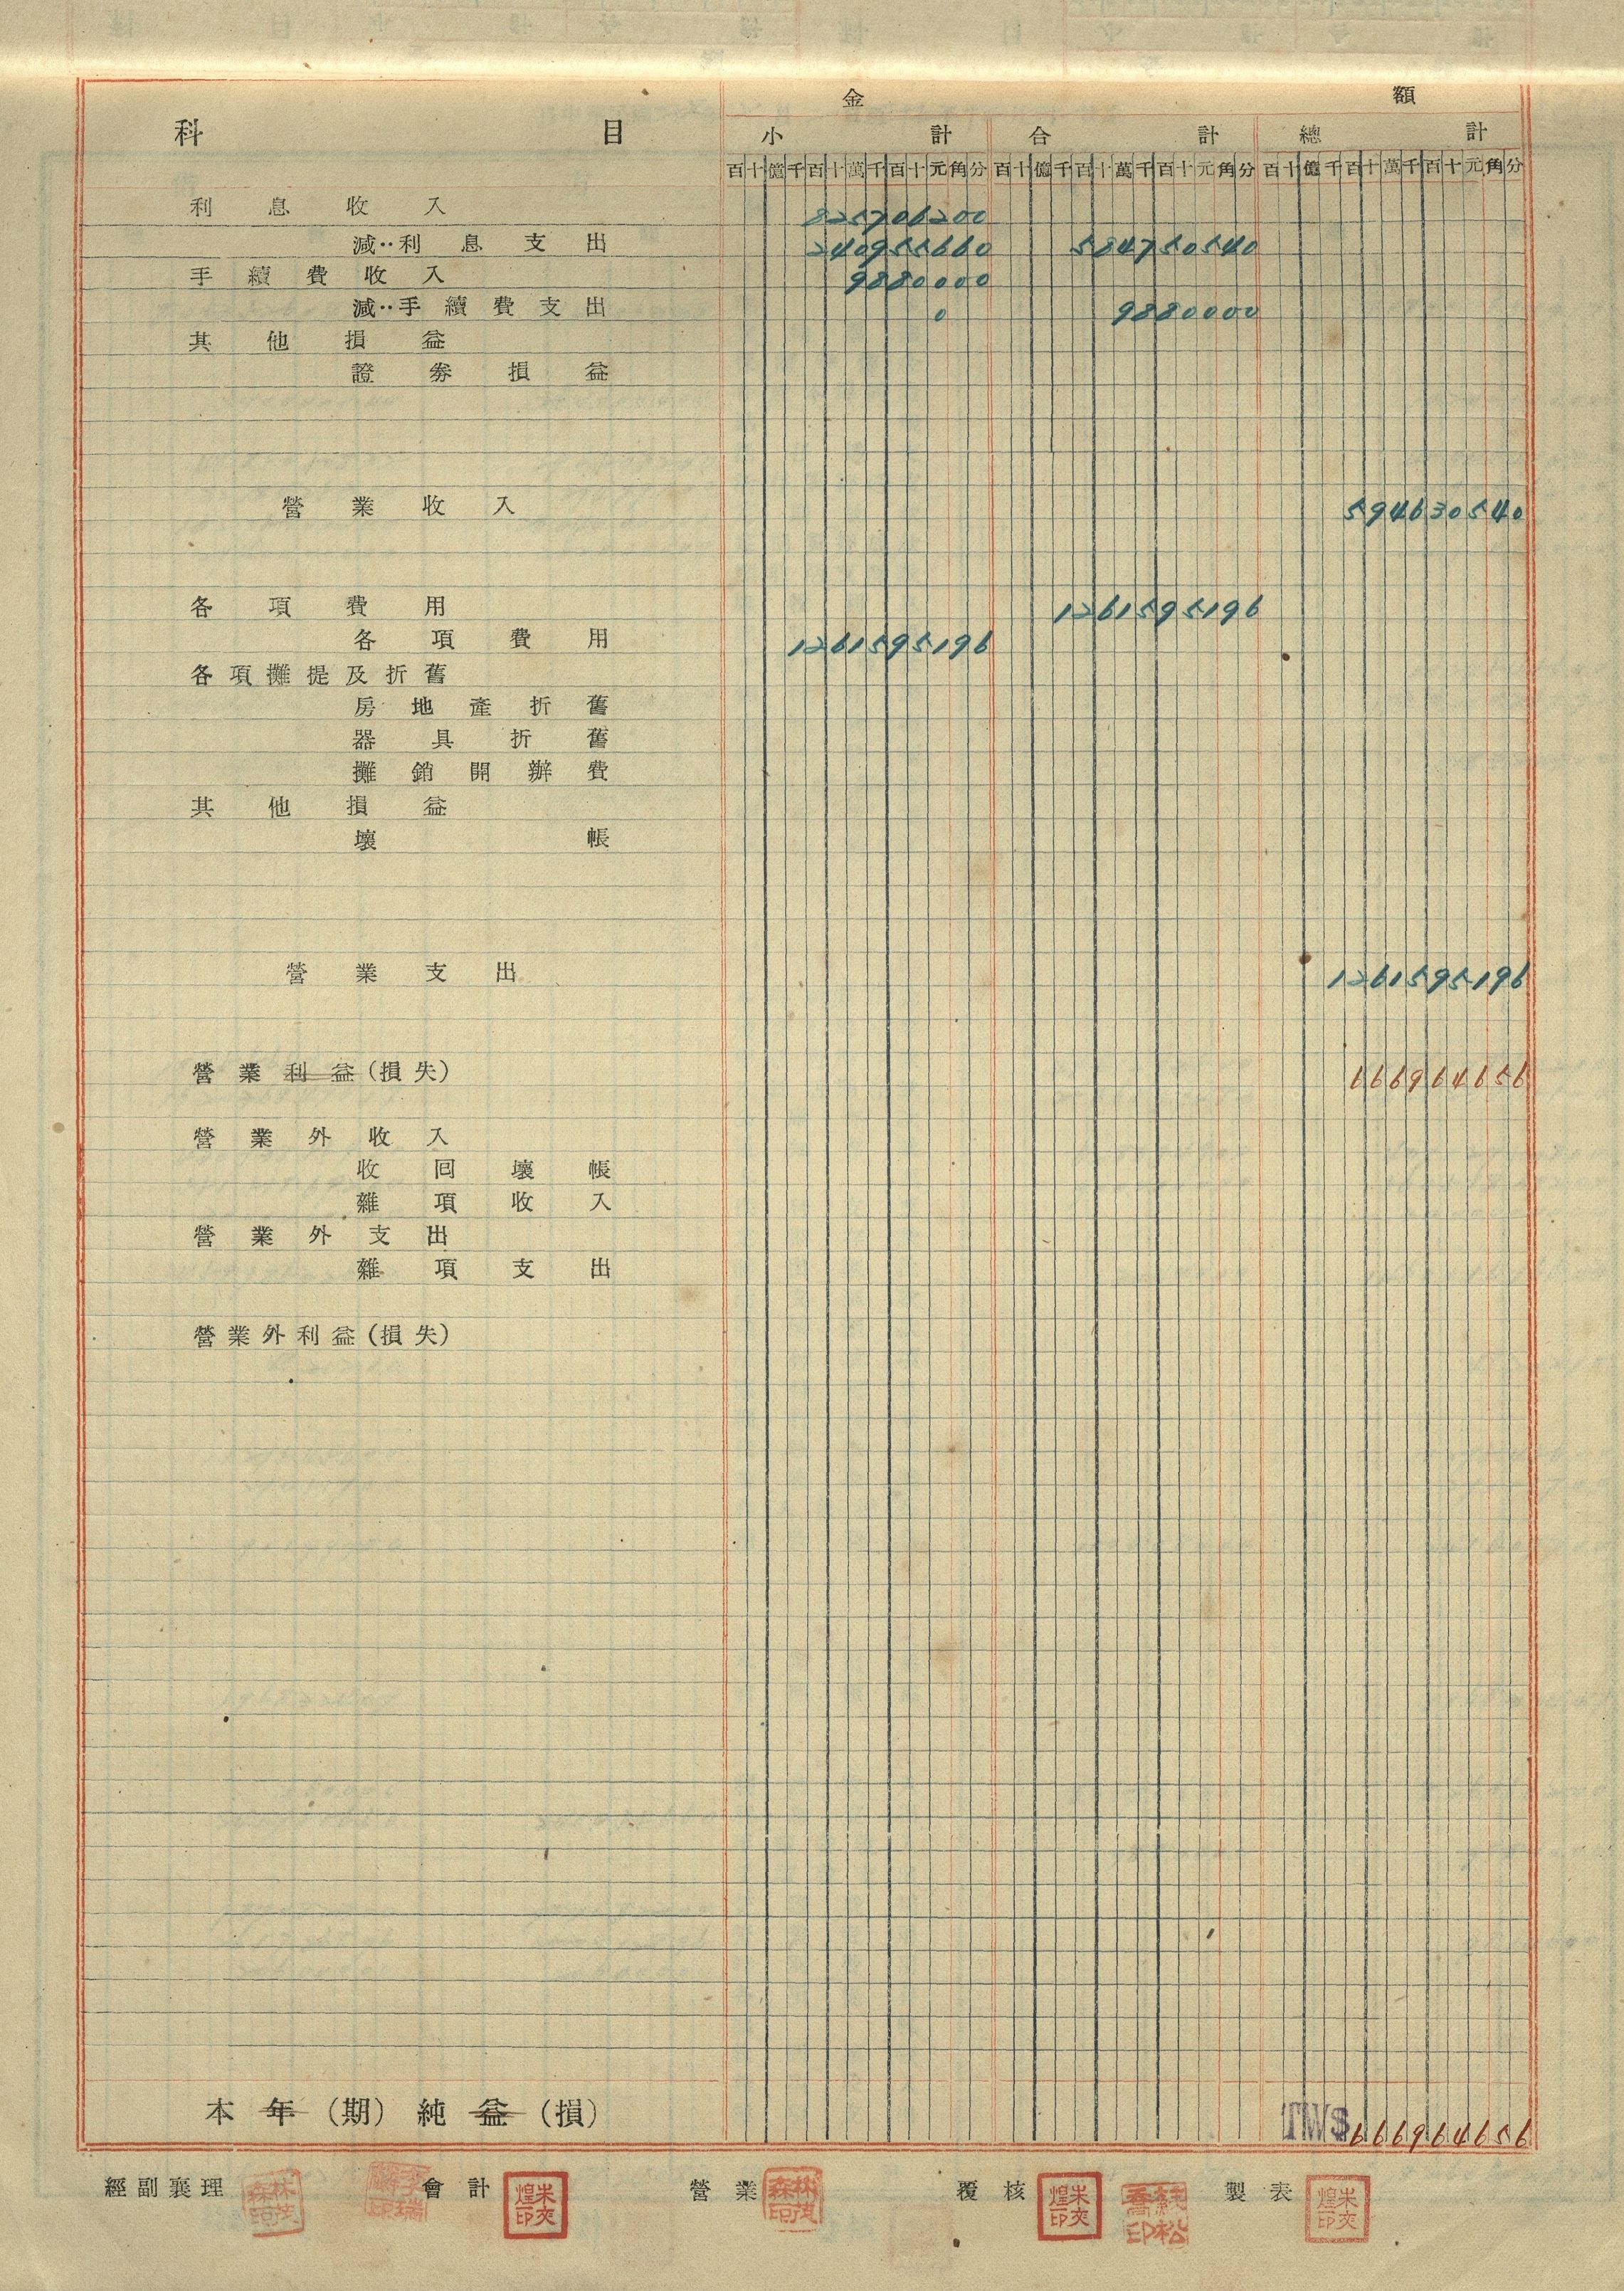 金 額
科 目 小 計 合 計 總 計
百十億千百十萬千百十元角分 百十億千百十萬千百十元角分 百十億千百十萬千百十元角分
利息收入 825706200
減‥利息支出 240955660 584750540
手續費收入 9880000
減‥手續費支出 0 9880000
其他損益
證券損益
營業收入 594630540
各項費用 1261595196
各項費用 1261595196
各項攤提及折舊
房地產折舊
器具折舊
攤銷開辦費
其他損益
壞帳
營業支出 1261595196
營業利益(損失) 666964656
營業外收入
收回壞帳
雜項收入
營業外支出
雜項支出
營業外利益(損失)
本年(期)純益(損) TWS 666964656
經副襄理 會計 營業 覆核 製表